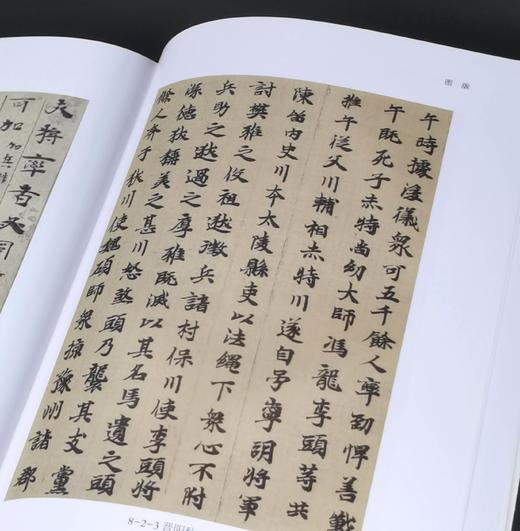 图 版
午時據浚儀衆可五千餘人率勁悍善戰
午既死子赤特尚幼大帥馮龍李頭等共
推午從父川輔相赤特川遂自号寧朔將軍
陳留內史川本太陵縣吏以法繩下衆心不附
討樊雅之役祖逖徵兵諸村保川使李頭將
兵助之逖遇之厚雅既滅以其名馬遺之頭
深德狄稱美之甚川怒煞頭乃襲其支黨
餘人奔于狄川使魏碩帥衆掠豫州諸郡
8-2-3 晋阳秋